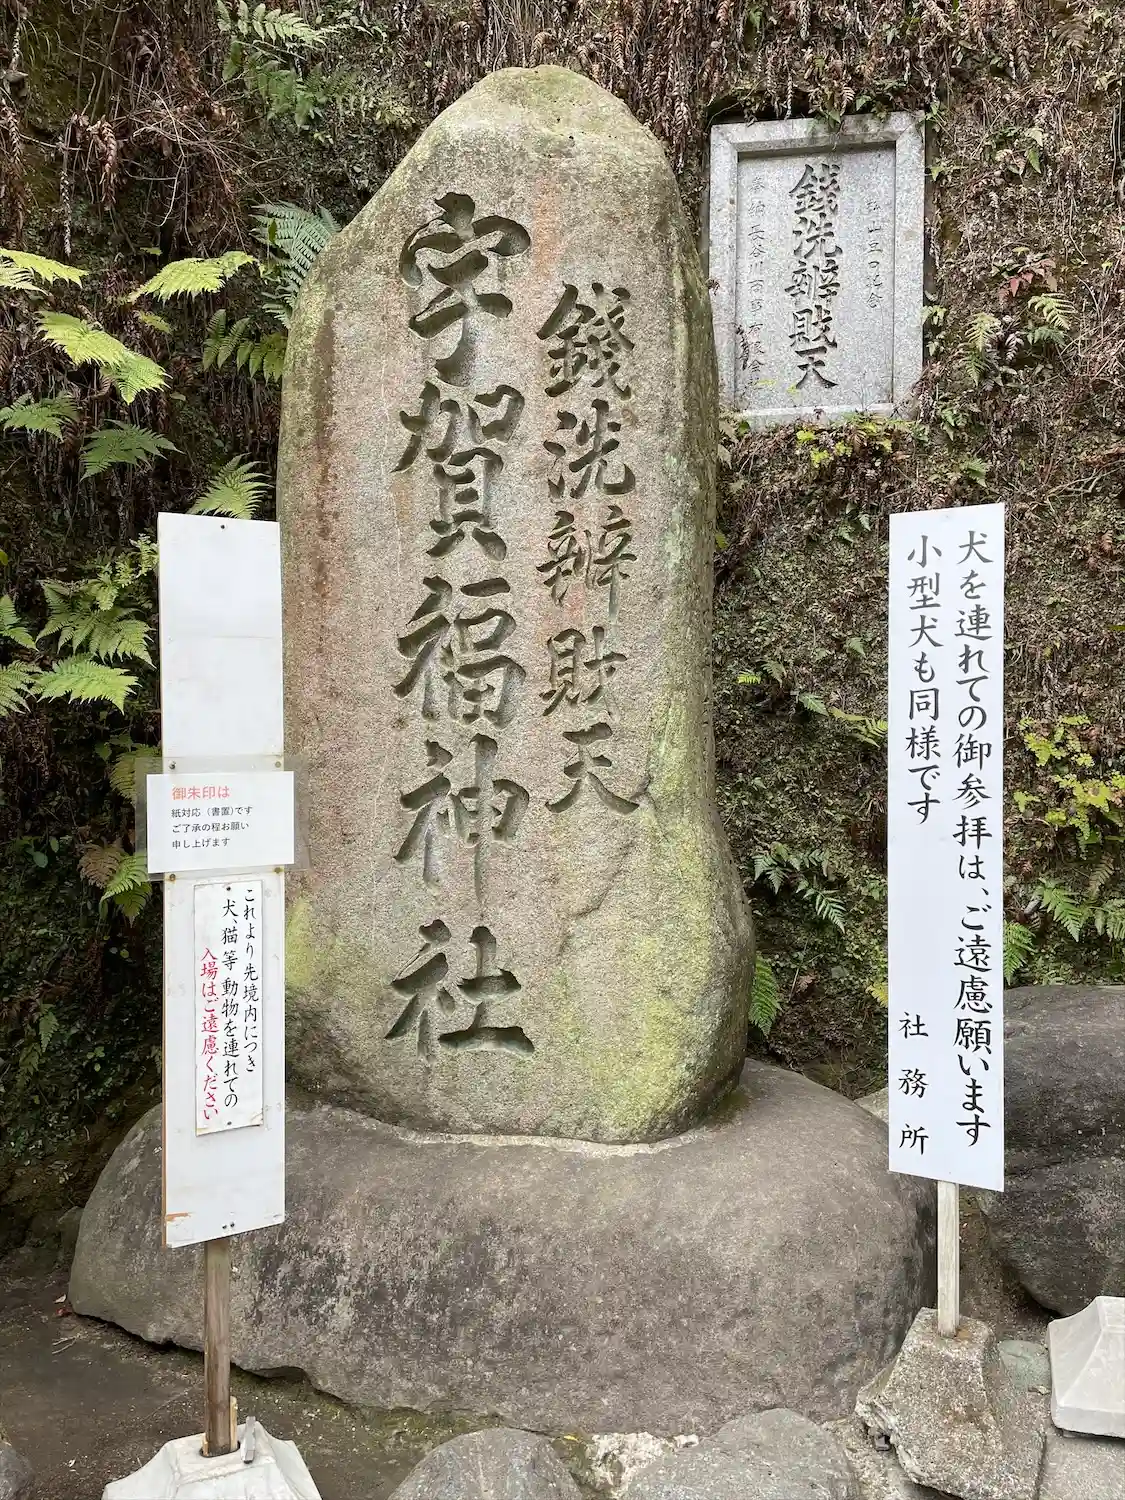 銭洗辨財天
宇賀福神社
銭洗辨財天
犬を連れての御参拝は、ご遠慮願います
小型犬も同様です
社務所
御朱印は
紙対応（書置)です
ご了承の程お願い
申し上げます
これより先境内につき
犬、猫等動物を連れての
入場はご遠慮ください